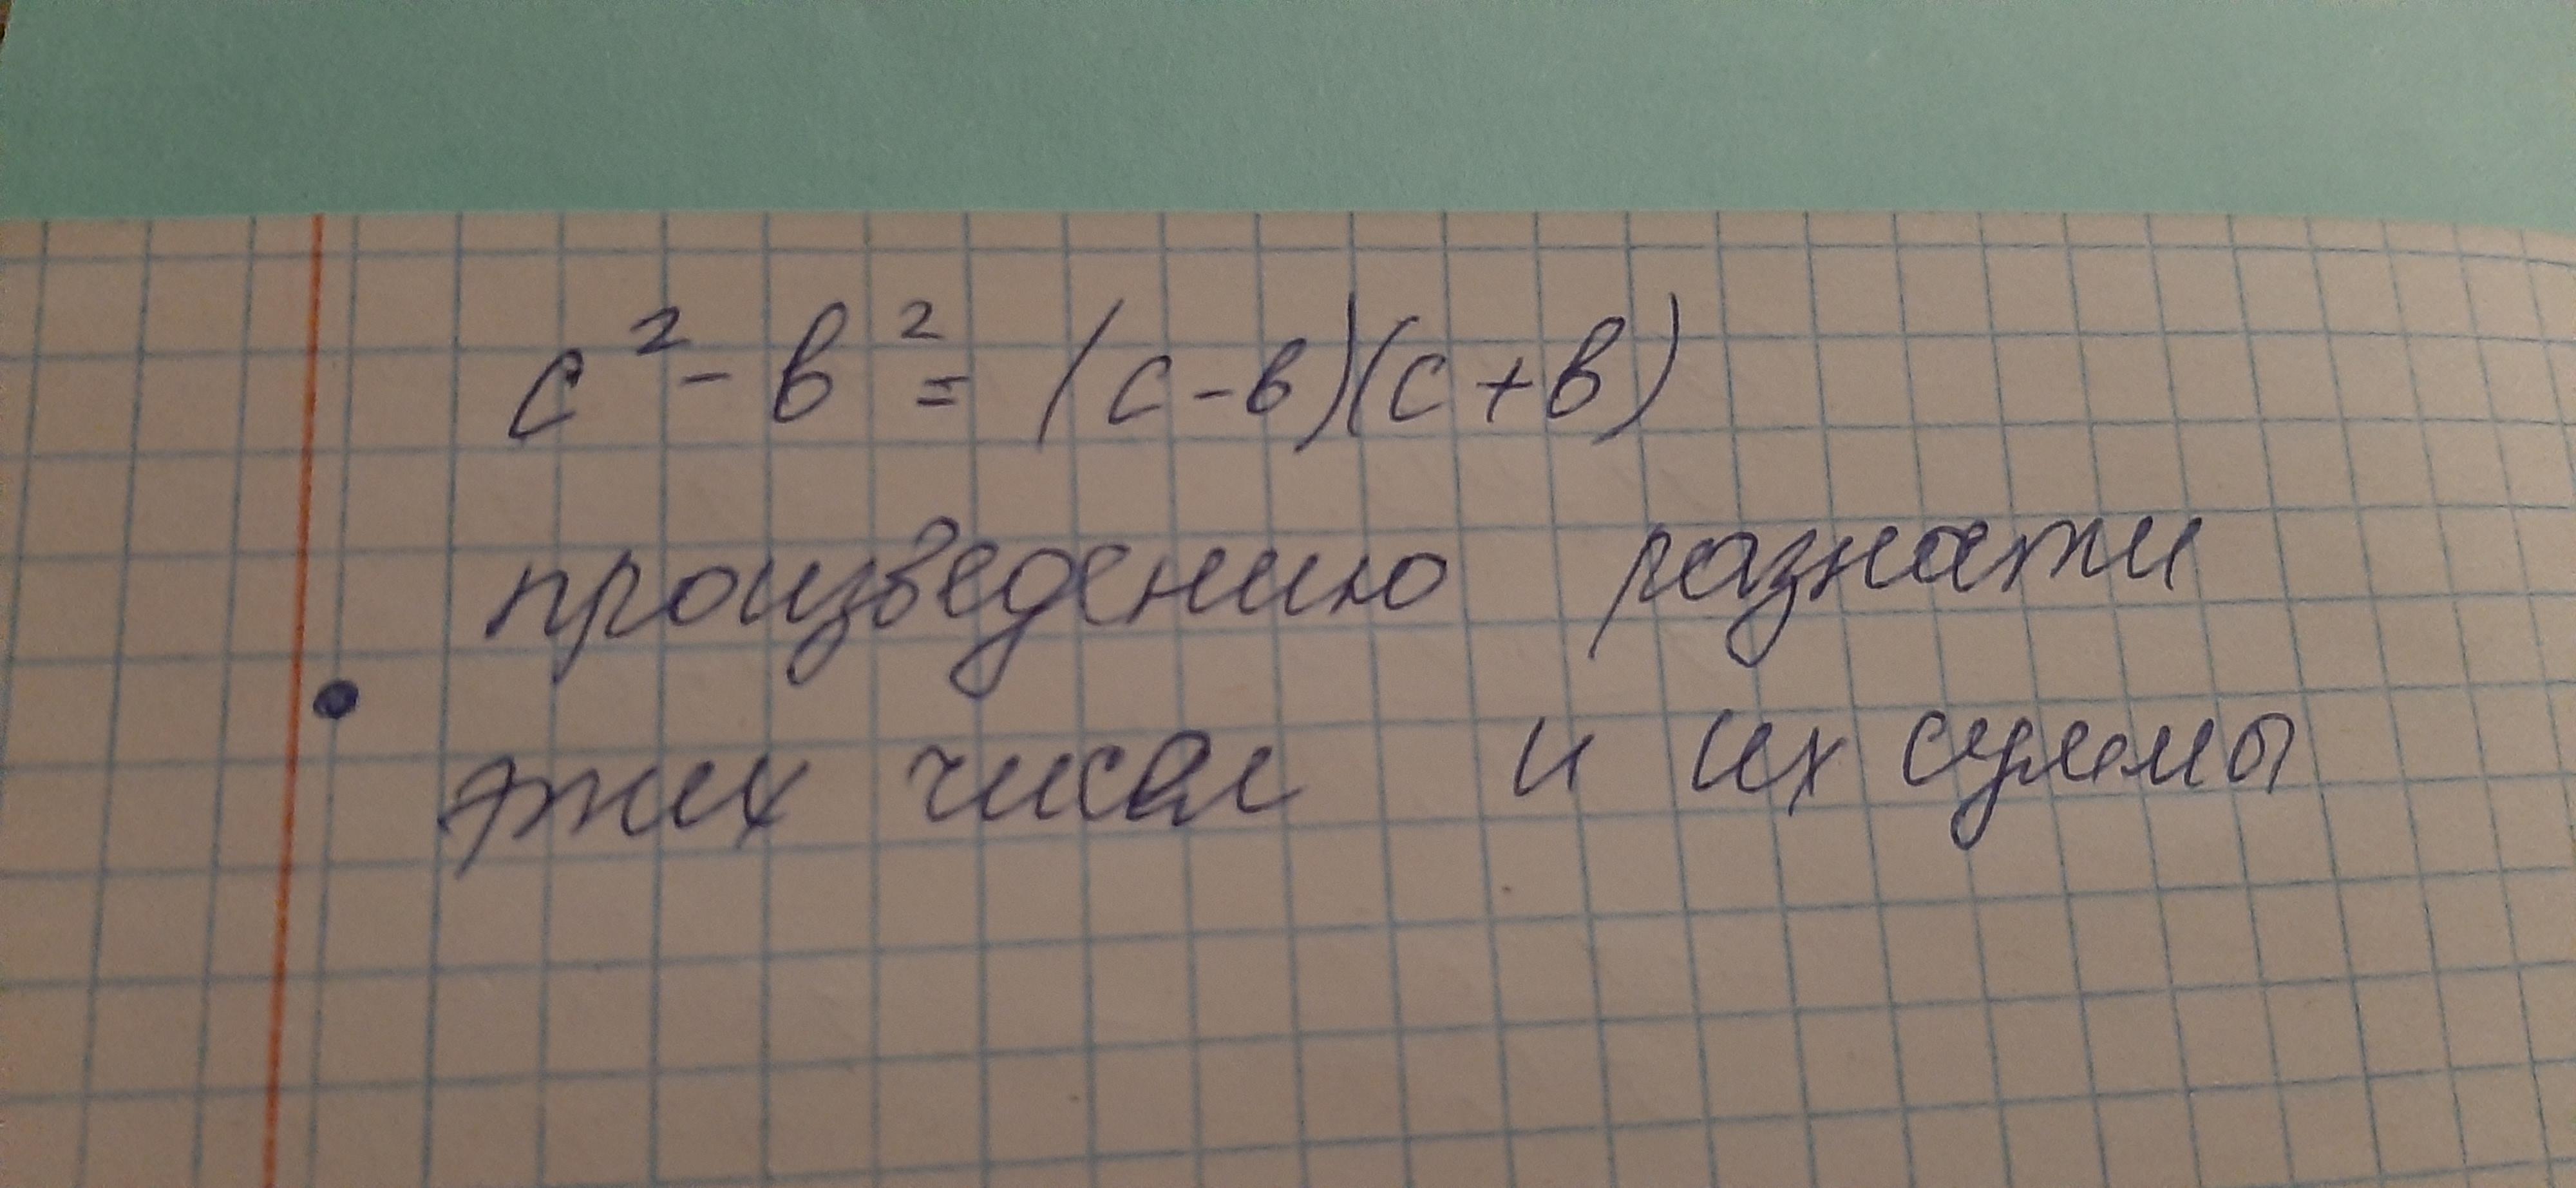 c² - в² = (c - в)(c + в)
произведению разности
этих чисел и их суммы